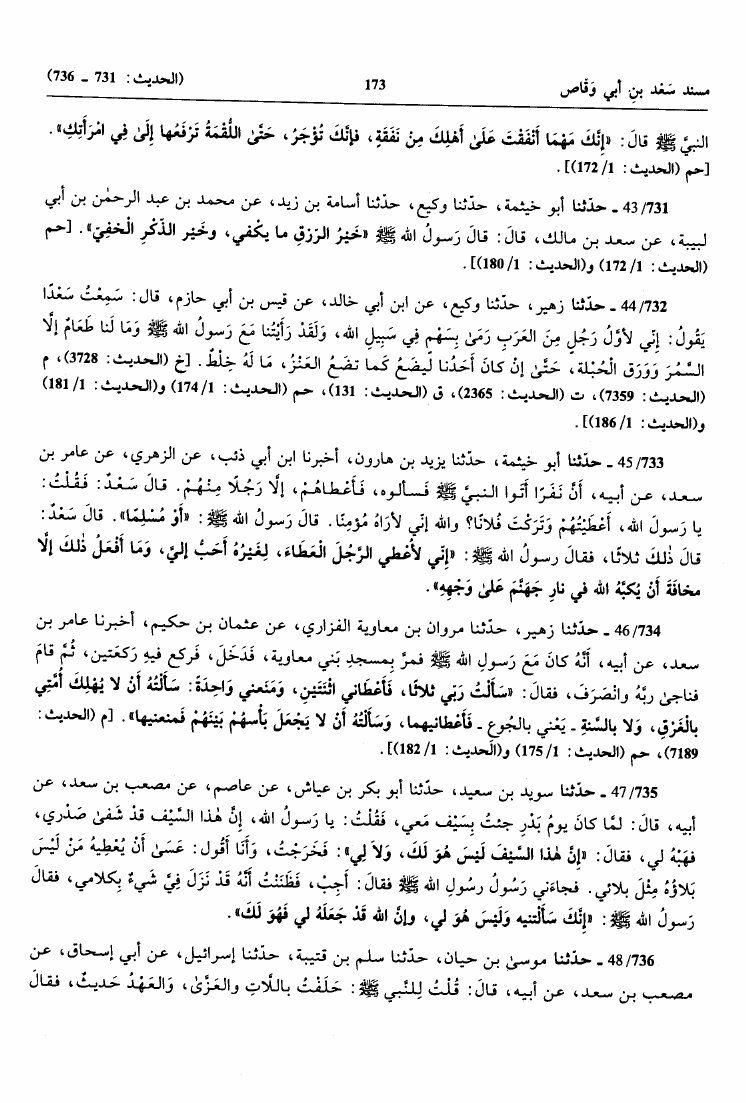 مسند سَعْد بنِ أبي وَقّاص 173 (الحديث: 731 ـ 736)
النبيَّ ﷺ قالَ: «إِنَّكَ مَهْمَا أَنْفَقْتَ عَلَىٰ أَهْلِكَ مِنْ نَفَقَةٍ، فإنَّكَ تُؤْجَرُ، حَتَّىٰ اللُّقْمَةُ تَرْفَعُها إِلَىٰ فِي امْرَأَتِكِ».
[حم (الحديث: 1/ 172)].
43/731 ـ حدّثنا أبو خيثمة، حدّثنا وكيع، حدّثنا أسامة بن زيد، عن محمد بن عبد الرحمٰن بن أبي
لبيبة، عن سعد بن مالك، قالَ: قالَ رَسولُ الله ﷺ «خَيْرُ الرِّزقِ ما يكْفي، وخَيْر الذِّكْرِ الْخَفِيّ». [حم
(الحديث: 1/ 172) و(الحديث: 1/ 180)].
44/732 ـ حدّثنا زهير، حدّثنا وكيع، عن ابن أبي خالد، عن قيس بن أبي حازم، قال: سَمِعْتُ سَعْدًا
يَقُولُ: إِنّي لأوَّلُ رَجُلٍ مِنَ العَرَبِ رَمَىٰ بِسَهْمٍ في سَبِيلِ الله، وَلَقَدْ رَأَيْتُنا مَعَ رَسولِ الله ﷺ وَمَا لَنا طَعَامٌ إِلَّا
السَّمُرَ وَوَرَق الْحُبْلة، حَتَّىٰ إنْ كانَ أَحَدُنا لَيضَعُ كَما تضَعُ العَنْزُ، مَا لَهُ خِلْطٌ. [خ (الحديث: 3728)، م
(الحديث: 7359)، ت (الحديث: 2365)، ق (الحديث: 131)، حم (الحديث: 1/ 174) و(الحديث: 1/ 181)
و(الحديث: 1/ 186)].
45/733 ـ حدّثنا أبو خيثمة، حدّثنا يزيد بن هارون، أخبرنا ابن أبي ذئب، عن الزهري، عن عامر بن
سعد، عن أبيه، أَنَّ نَفَرًا أَتَوا النبيَّ ﷺ فَسألوه، فَأَعْطاهُمْ، إِلَّا رَجُلًا مِنْهُمْ. قالَ سَعْدٌ: فَقُلْتُ:
يا رَسولَ الله، أَعْطَيْتُهُمْ وَتَرَكْتَ فُلانًا؟ والله إنّي لأرَاهُ مُؤمِنًا. قالَ رَسولُ الله ﷺ: «أَوْ مُسْلِمًا». قالَ سَعْدٌ:
قالَ ذٰلكَ ثلاثًا، فقالَ رسولُ الله ﷺ: «إِنّي لأُعْطي الرَّجُلَ الْعَطاءَ، لَغَيْرُهُ أَحَبُّ إليَّ، وَمَا أَفْعَلُ ذٰلكَ إِلَّا
مخافَةَ أَنْ يُكبَّهُ الله في نارِ جَهَنَّمَ عَلىٰ وَجْهِهِ».
46/734 ـ حدّثنا زهير، حدّثنا مروان بن معاوية الفزاري، عن عثمان بن حكيم، أخبرنا عامر بن
سعد، عن أبيه، أَنَّهُ كانَ مَعَ رَسولِ الله ﷺ فمرَّ بِمسجدِ بَني معاوية، فَدَخَلَ، فَركع فيهِ رَكعَتين، ثُمَّ قامَ
فناجىٰ ربَّهُ وانْصَرَفَ، فقالَ: «سَأَلْتُ رَبّي ثلاثًا، فَأَعْطاني اثْنَتَينِ، وَمَنَعني وَاحِدَةً: سَأَلْتُهُ أَنْ لا يُهْلِكَ أُمَّتِي
بالْغَرْقِ، وَلا بالسَّنةِ ـ يَعْني بالجُوع ـ فَأَعْطانيهما، وَسَأَلْتُهُ أَنْ لا يَجْعَلَ بَأسهُمْ بَيْنَهُمْ فَمنعنيها». [م (الحديث:
7189)، حم (الحديث: 1/ 175) و(الحديث: 1/ 182)].
47/735 ـ حدّثنا سويد بن سعيد، حدّثنا أبو بكر بن عياش، عن عاصم، عن مصعب بن سعد، عن
أبيه، قالَ: لمَّا كانَ يومُ بَدْرٍ جئتُ بِسَيْف مَعي، فَقُلْتُ: يا رَسولُ الله، إِنَّ هٰذا السَّيْف قَدْ شَفىٰ صَدْري،
فهَبْهُ لي، فقالَ: «إنَّ هٰذا السَّيفَ لَيْسَ هُوَ لَكَ، وَلا لِي»: فَخَرَجْتُ، وَأَنَا أَقُول: عَسَىٰ أَنْ يُعْطِيهُ مَنْ لَيْسَ
بَلاؤُهُ مِثْلَ بلائي. فجاءَني رَسُولُ رسولِ الله ﷺ فقالَ: أَجِبْ، فَظَننْتُ أَنَّهُ قَدْ نَزَلَ فِيَّ شَيءٌ بِكلامي، فقالَ
رَسولُ الله ﷺ: «إِنَّكَ سَأَلْتنيه وَلَيْسَ هُوَ لي، وإنَّ الله قَدْ جَعَلَهُ لي فَهُوَ لَكَ».
48/736 ـ حدّثنا موسىٰ بن حيان، حدّثنا سلم بن قتيبة، حدّثنا إسرائيل، عن أبي إسحاق، عن
مصعب بن سعد، عن أبيه، قالَ: قُلْتُ لِلنَّبي ﷺ: حَلَفْتُ بـاللَّاتِ والعَزَّىٰ، وَالعَهْدُ حَديثٌ، فقالَ